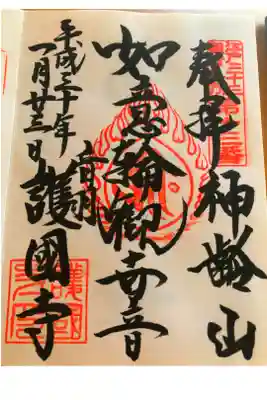 奉拝 神齢山
如意輪観世音
音羽
護國寺
平成三十年
一月廿三日